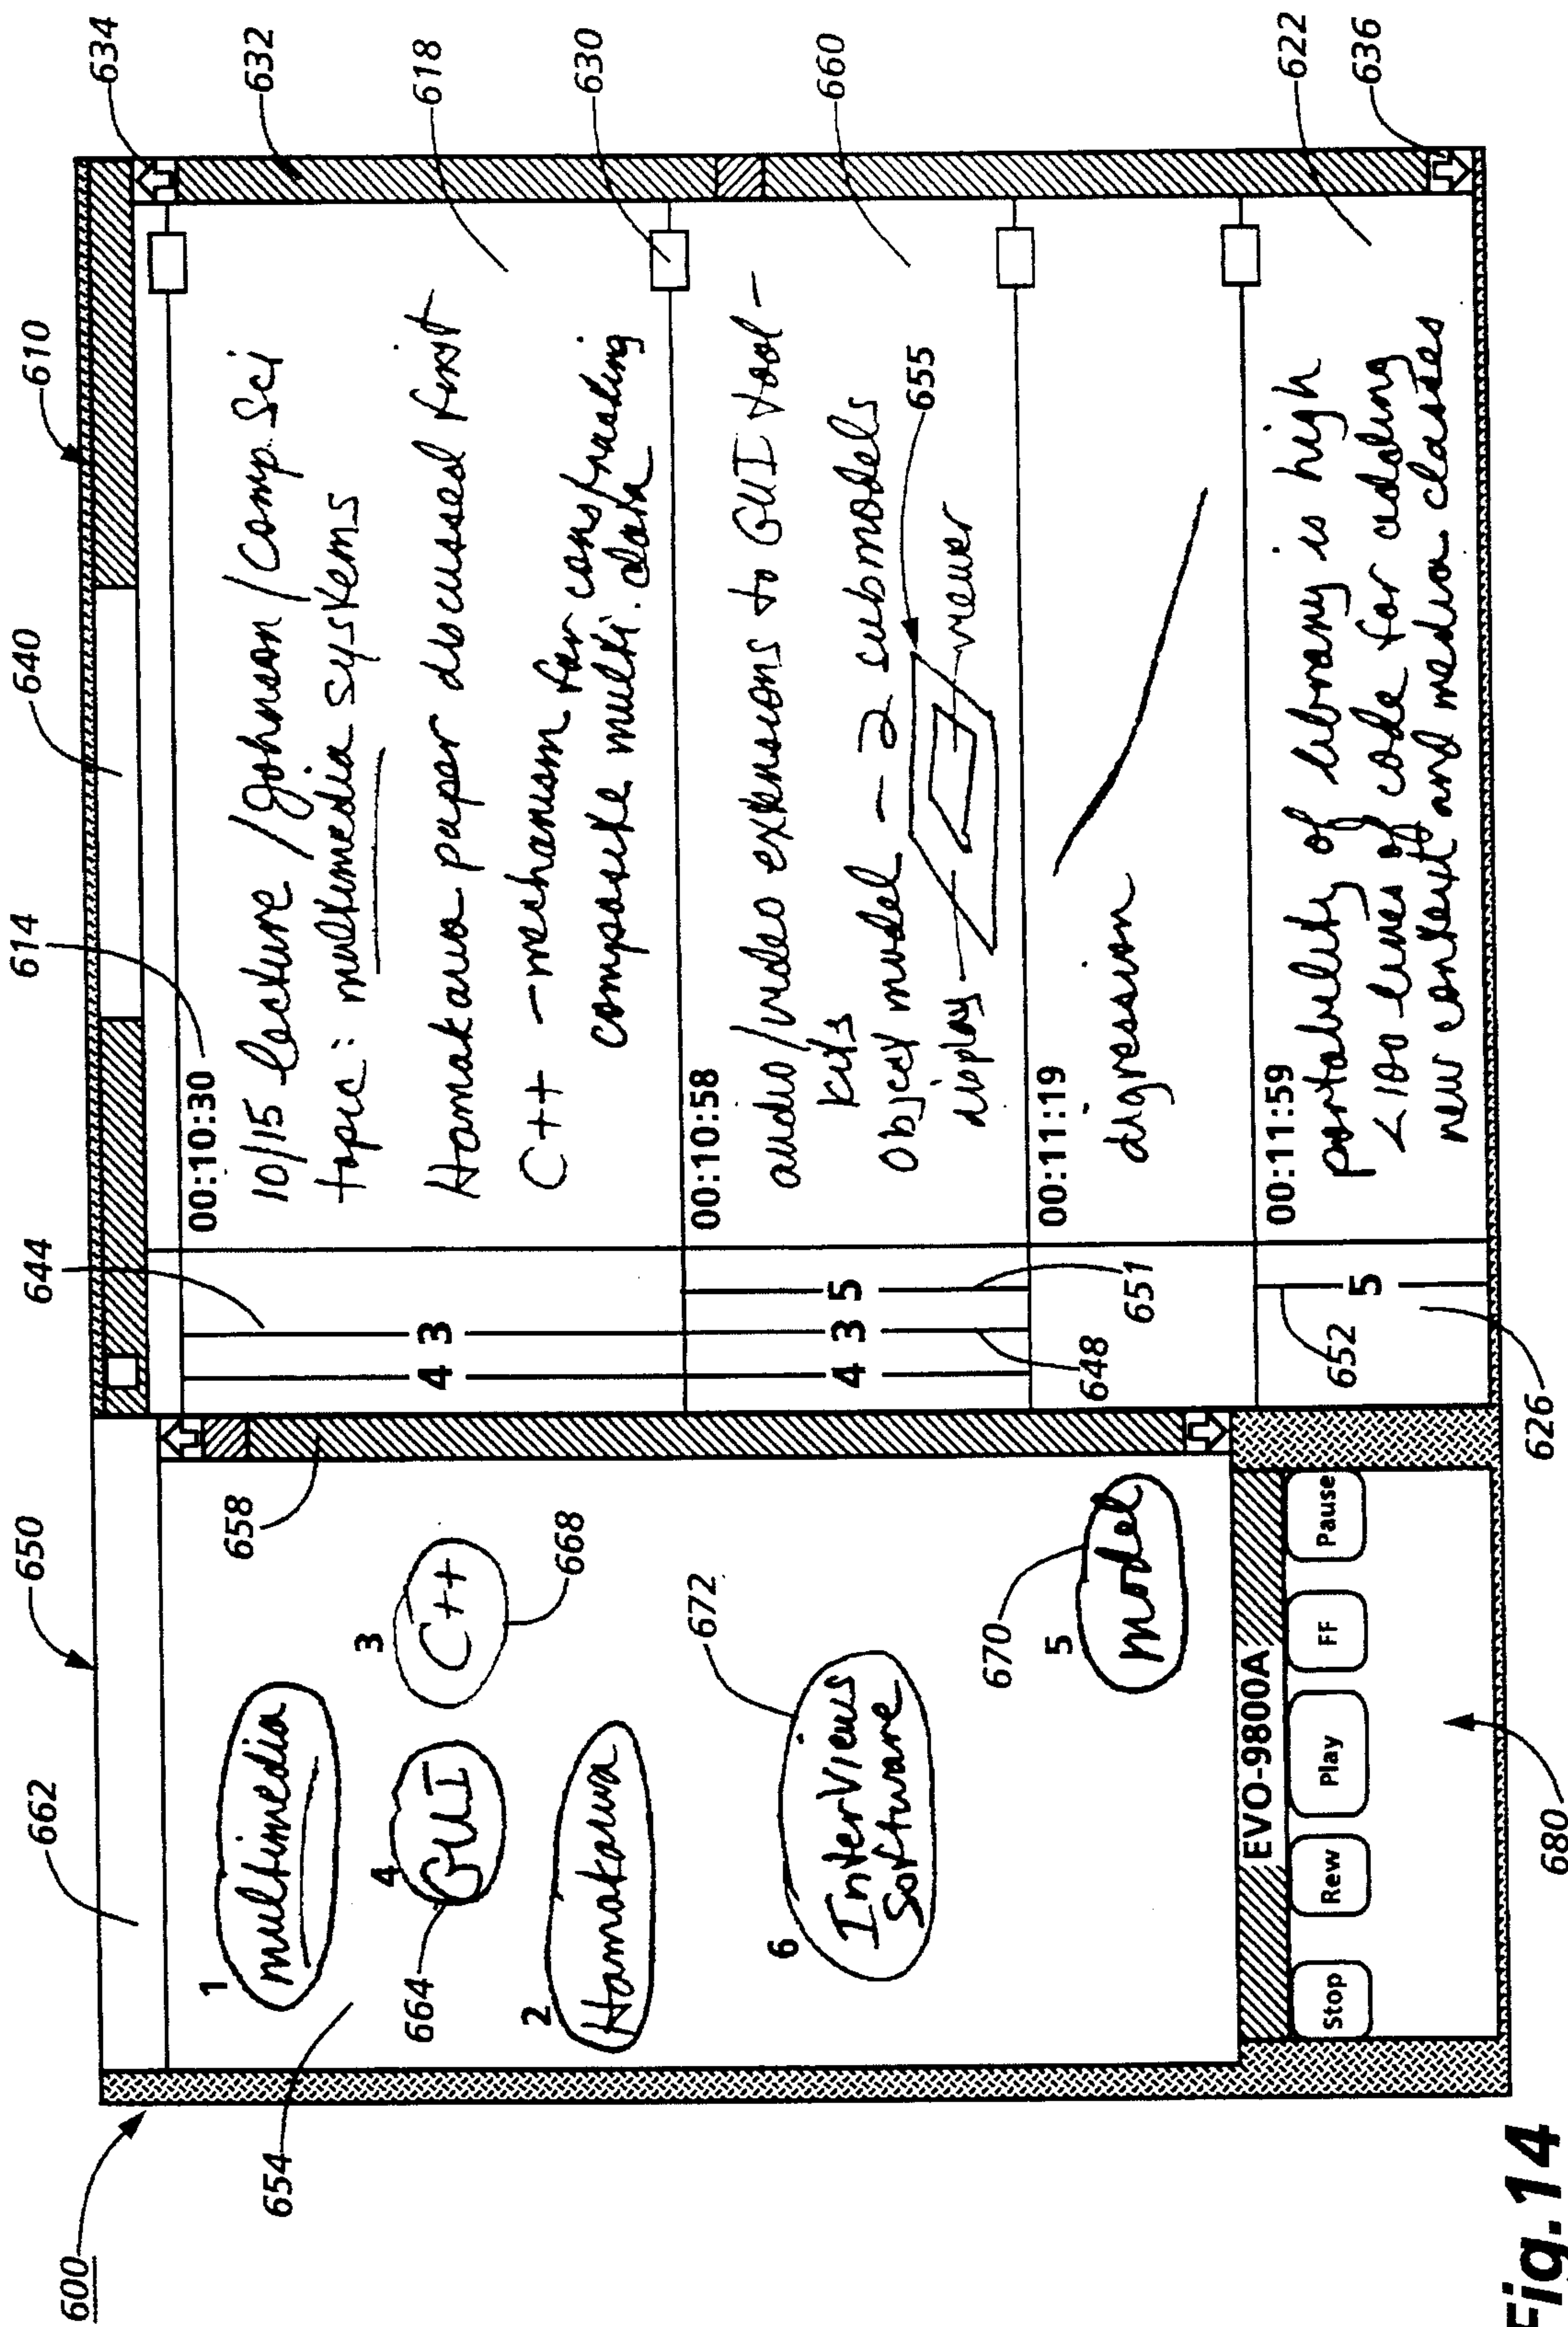 600
650
662
658
654
1
multimedia
3
C++
668
4
GUI
664
2
Hamakawa
672
6
InterViews
Software
670
5
model
EVO-9800A
Stop
Rew
Play
FF
Pause
680
610
644
614
640
634
632
618
630
660
622
636
4 3
00:10:30
10/15 lecture / Johnson / Comp. Sci
topic: multimedia systems
Hamakawa paper discussed first
C++ - mechanism for constructing
composite multi. data
4 3 5
00:10:58
audio/video extensions to GUI tool-
kits
Object model - 2 submodels
display
viewer
655
651
648
00:11:19
digression
652
5
00:11:59
portability of library is high
<100 lines of code for adding
new context and media classes
626
Fig.14